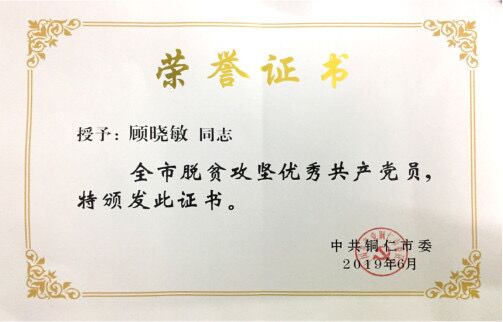 荣誉证书
授予：顾晓敏 同志
全市脱贫攻坚优秀共产党员，
特颁发此证书。
中共铜仁市委
2019年6月